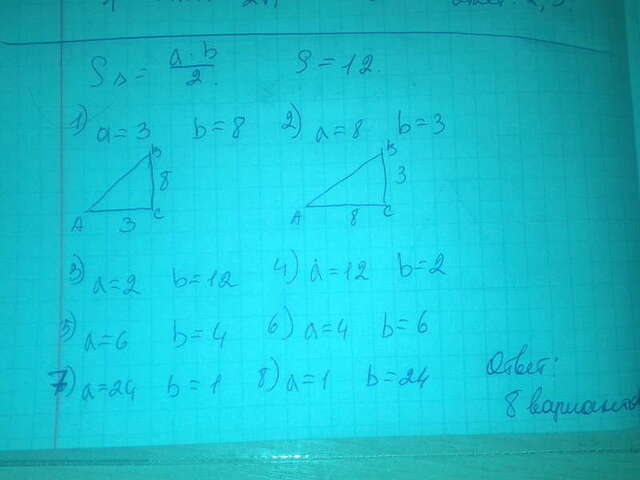 S△ = a·b/2. S=12.
1) a=3 b=8 2) a=8 b=3
B B
8 3
A 3 C A 8 C
3) a=2 b=12 4) a=12 b=2
5) a=6 b=4 6) a=4 b=6
7) a=24 b=1 8) a=1 b=24
Ответ:
8 варианто